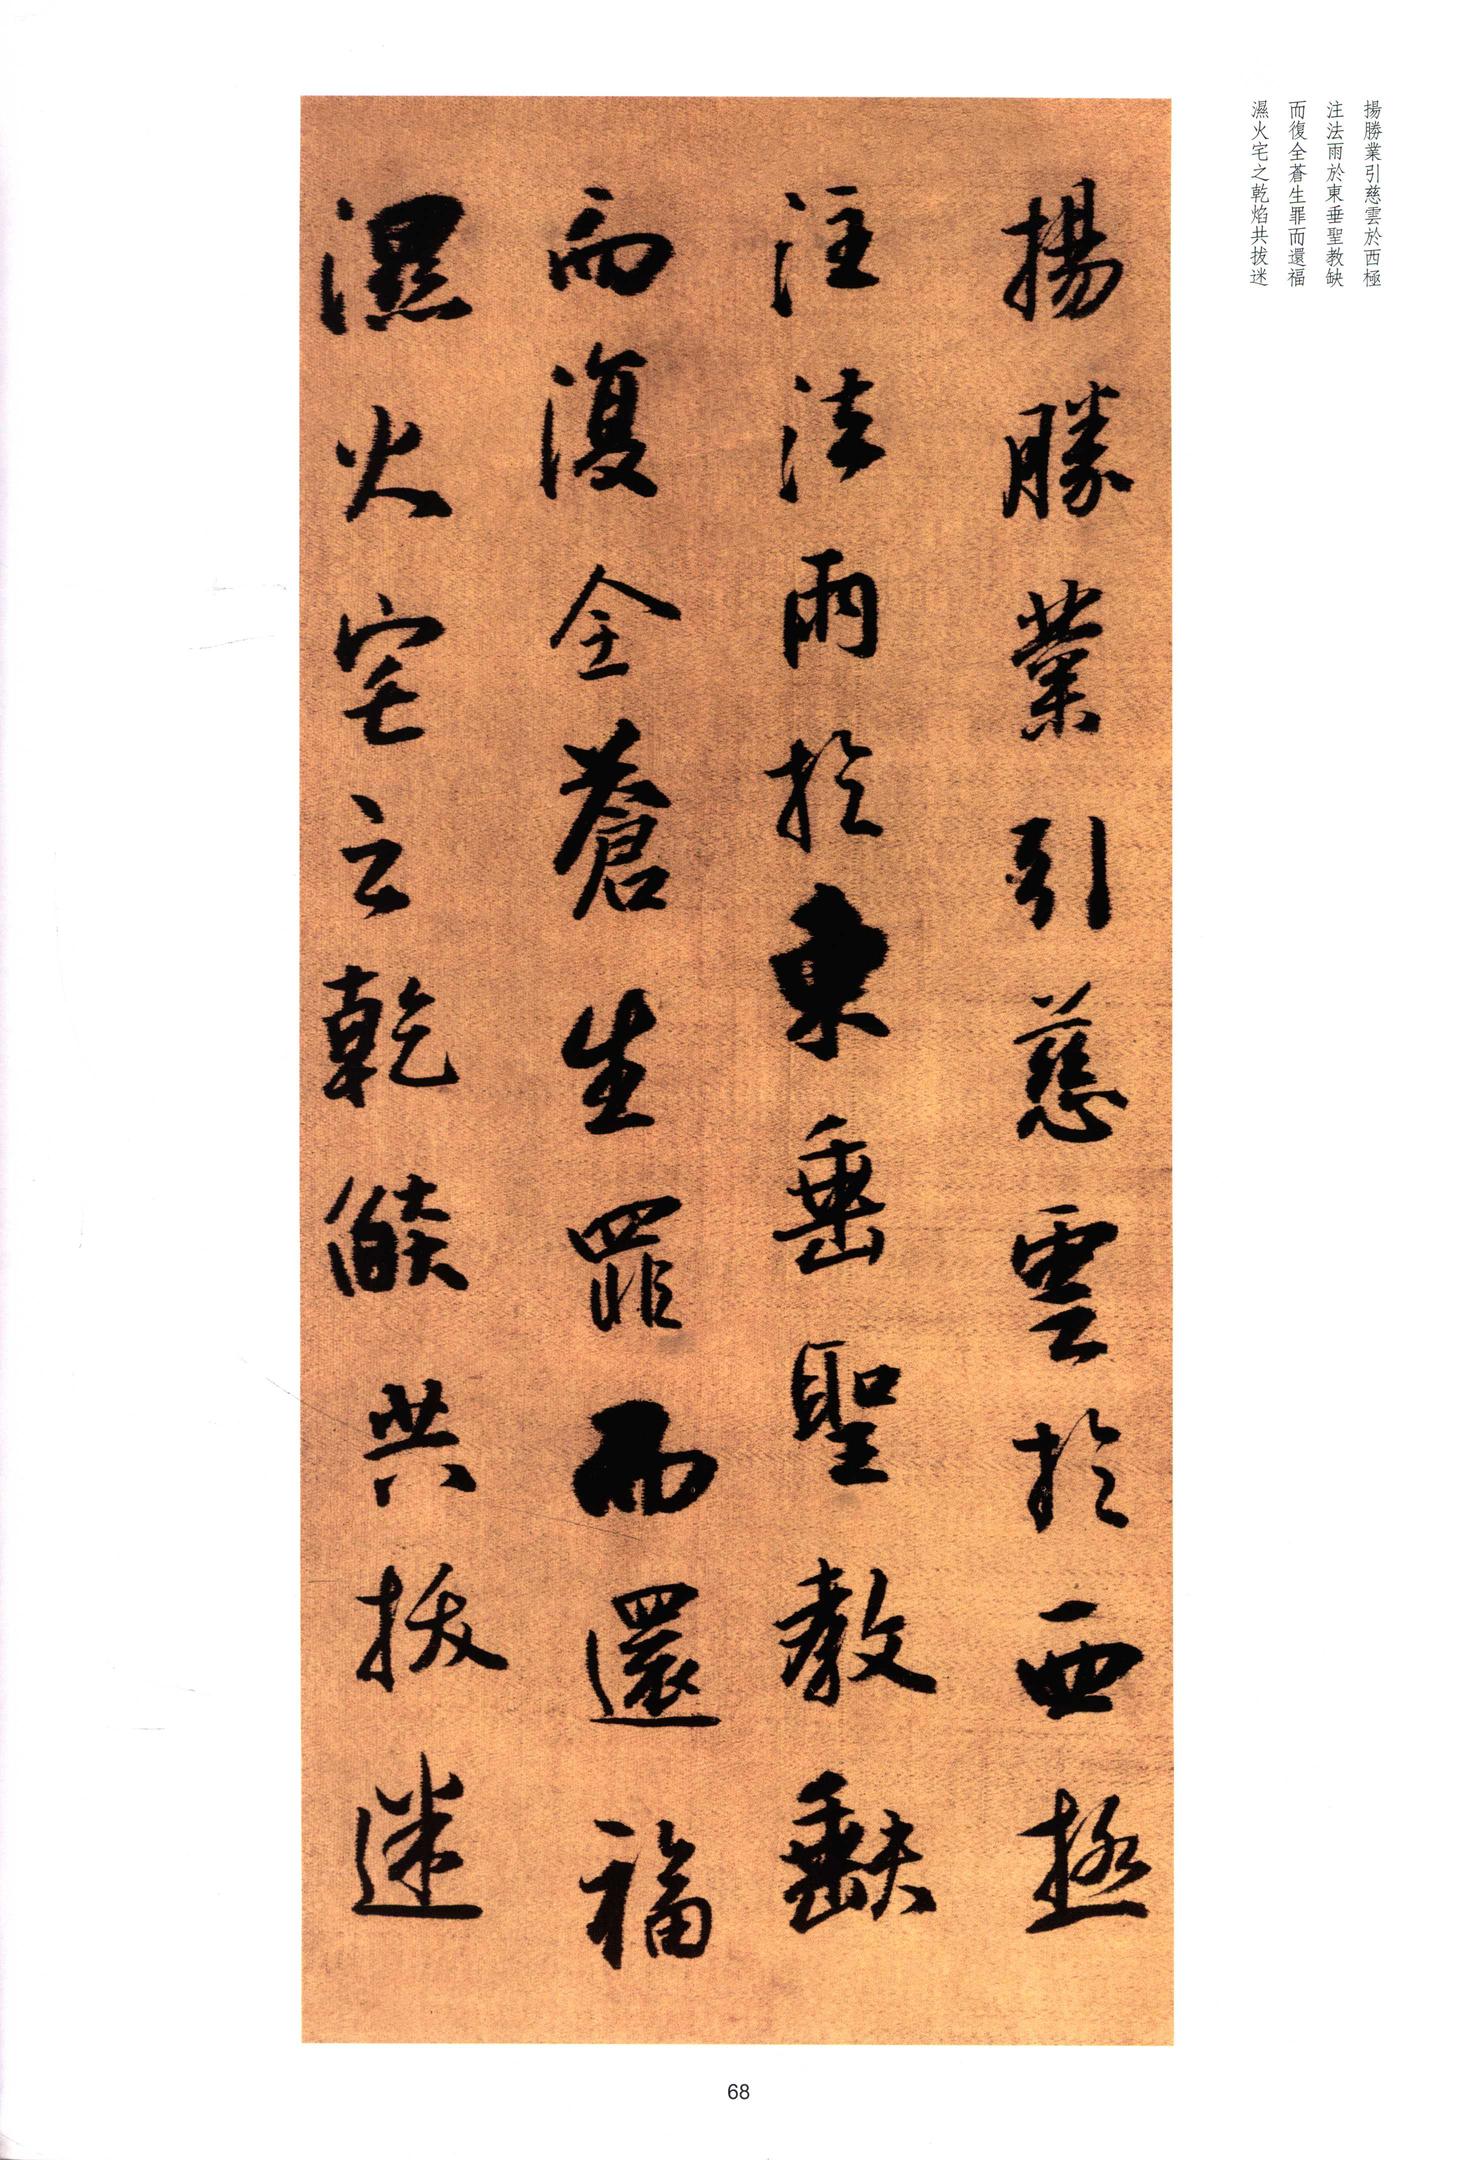 揚勝業引慈雲於西極
注法雨於東垂聖教缺
而復全蒼生罪而還福
濕火宅之乾焰共拔迷
揚勝業引慈雲於西極
注法雨於東垂聖教缺
而復全蒼生罪而還福
濕火宅之乾焰共拔迷
68